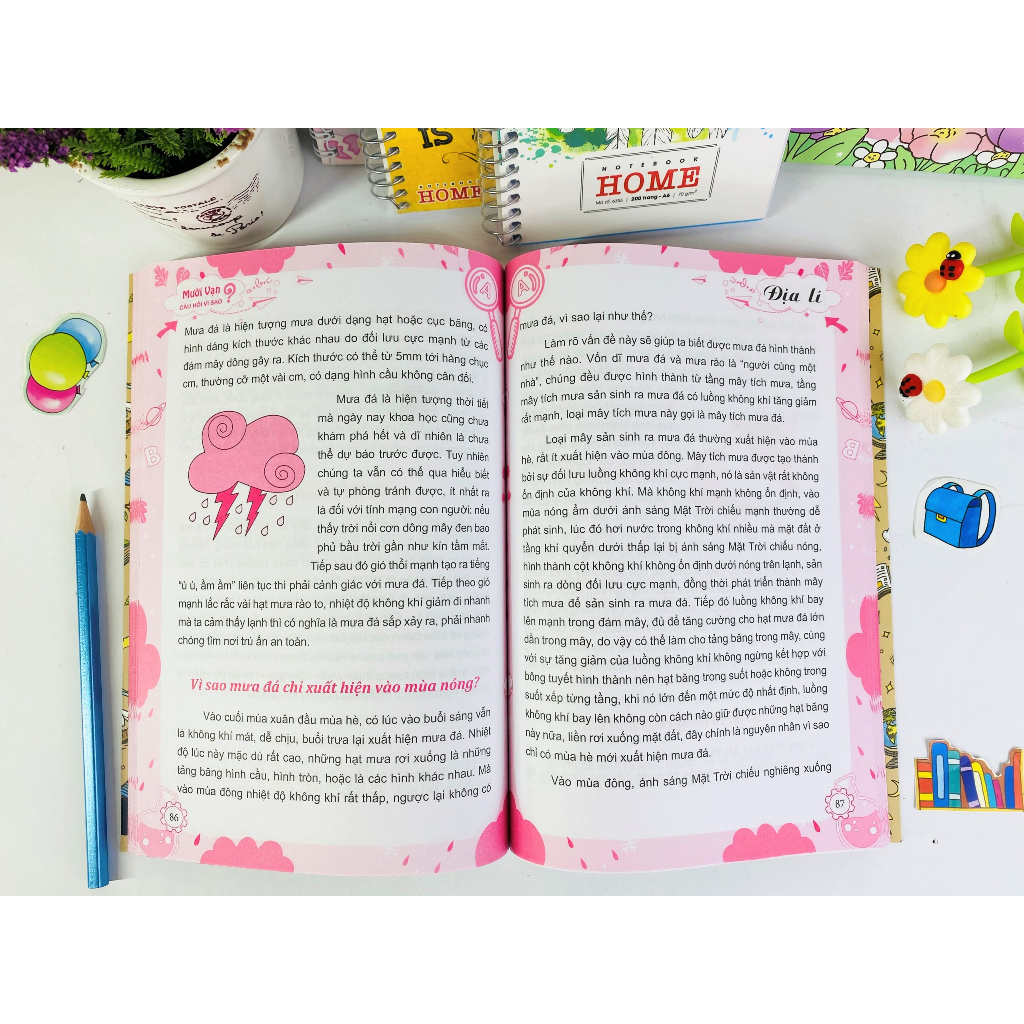 IS
NOTEBOOK
HOME
NOTEBOOK
HOME
Mã số: 6356 | 200 trang - A6 | 70 g/m²
POSTALE
de Paris!
Mười Vạn
CÂU HỎI VÌ SAO ?
Mưa đá là hiện tượng mưa dưới dạng hạt hoặc cục băng, có
hình dáng kích thước khác nhau do đối lưu cực mạnh từ các
đám mây dông gây ra. Kích thước có thể từ 5mm tới hàng chục
cm, thường cỡ một vài cm, có dạng hình cầu không cân đối.
Mưa đá là hiện tượng thời tiết
mà ngày nay khoa học cũng chưa
khám phá hết và dĩ nhiên là chưa
thể dự báo trước được. Tuy nhiên
chúng ta vẫn có thể qua hiểu biết
và tự phòng tránh được, ít nhất ra
là đối với tính mạng con người: nếu
thấy trời nổi cơn dông mây đen bao
phủ bầu trời gần như kín tầm mắt.
Tiếp sau đó gió thổi mạnh tạo ra tiếng
"ù ù, ầm ầm" liên tục thì phải cảnh giác với mưa đá. Tiếp theo gió
mạnh lắc rắc vài hạt mưa rào to, nhiệt độ không khí giảm đi nhanh
mà ta cảm thấy lạnh thì có nghĩa là mưa đá sắp xảy ra, phải nhanh
chóng tìm nơi trú ẩn an toàn.
Vì sao mưa đá chỉ xuất hiện vào mùa nóng?
Vào cuối mùa xuân đầu mùa hè, có lúc vào buổi sáng vẫn
là không khí mát, dễ chịu, buổi trưa lại xuất hiện mưa đá. Nhiệt
độ lúc này mặc dù rất cao, những hạt mưa rơi xuống là những
tảng băng hình cầu, hình tròn, hoặc là các hình khác nhau. Mà
vào mùa đông nhiệt độ không khí rất thấp, ngược lại không có
86
Địa lí
mưa đá, vì sao lại như thế?
Làm rõ vấn đề này sẽ giúp ta biết được mưa đá hình thành
như thế nào. Vốn dĩ mưa đá và mưa rào là "người cùng một
nhà", chúng đều được hình thành từ tầng mây tích mưa, tầng
mây tích mưa sản sinh ra mưa đá có luồng không khí tăng giảm
rất mạnh, loại mây tích mưa này gọi là mây tích mưa đá.
Loại mây sản sinh ra mưa đá thường xuất hiện vào mùa
hè, rất ít xuất hiện vào mùa đông. Mây tích mưa được tạo thành
bởi sự đối lưu luồng không khí cực mạnh, nó là sản vật rất không
ổn định của không khí. Mà không khí mạnh không ổn định, vào
mùa nóng ẩm dưới ánh sáng Mặt Trời chiếu mạnh thường dễ
phát sinh, lúc đó hơi nước trong không khí nhiều mà mặt đất ở
tầng khí quyển dưới thấp lại bị ánh sáng Mặt Trời chiếu nóng,
hình thành cột không khí không ổn định dưới nóng trên lạnh, sản
sinh ra dòng đối lưu cực mạnh, đồng thời phát triển thành mây
tích mưa để sản sinh ra mưa đá. Tiếp đó luồng không khí bay
lên mạnh trong đám mây, đủ để tăng cường cho hạt mưa đá lớn
dần trong mây, do vậy có thể làm cho tảng băng trong mây, cùng
với sự tăng giảm của luồng không khí không ngừng kết hợp với
bông tuyết hình thành nên hạt băng trong suốt hoặc không trong
suốt xếp từng tầng, khi nó lớn đến một mức độ nhất định, luồng
không khí bay lên không còn cách nào giữ được những hạt băng
này nữa, liền rơi xuống mặt đất, đây chính là nguyên nhân vì sao
chỉ có mùa hè mới xuất hiện mưa đá.
Vào mùa đông, ánh sáng Mặt Trời chiếu nghiêng xuống
87